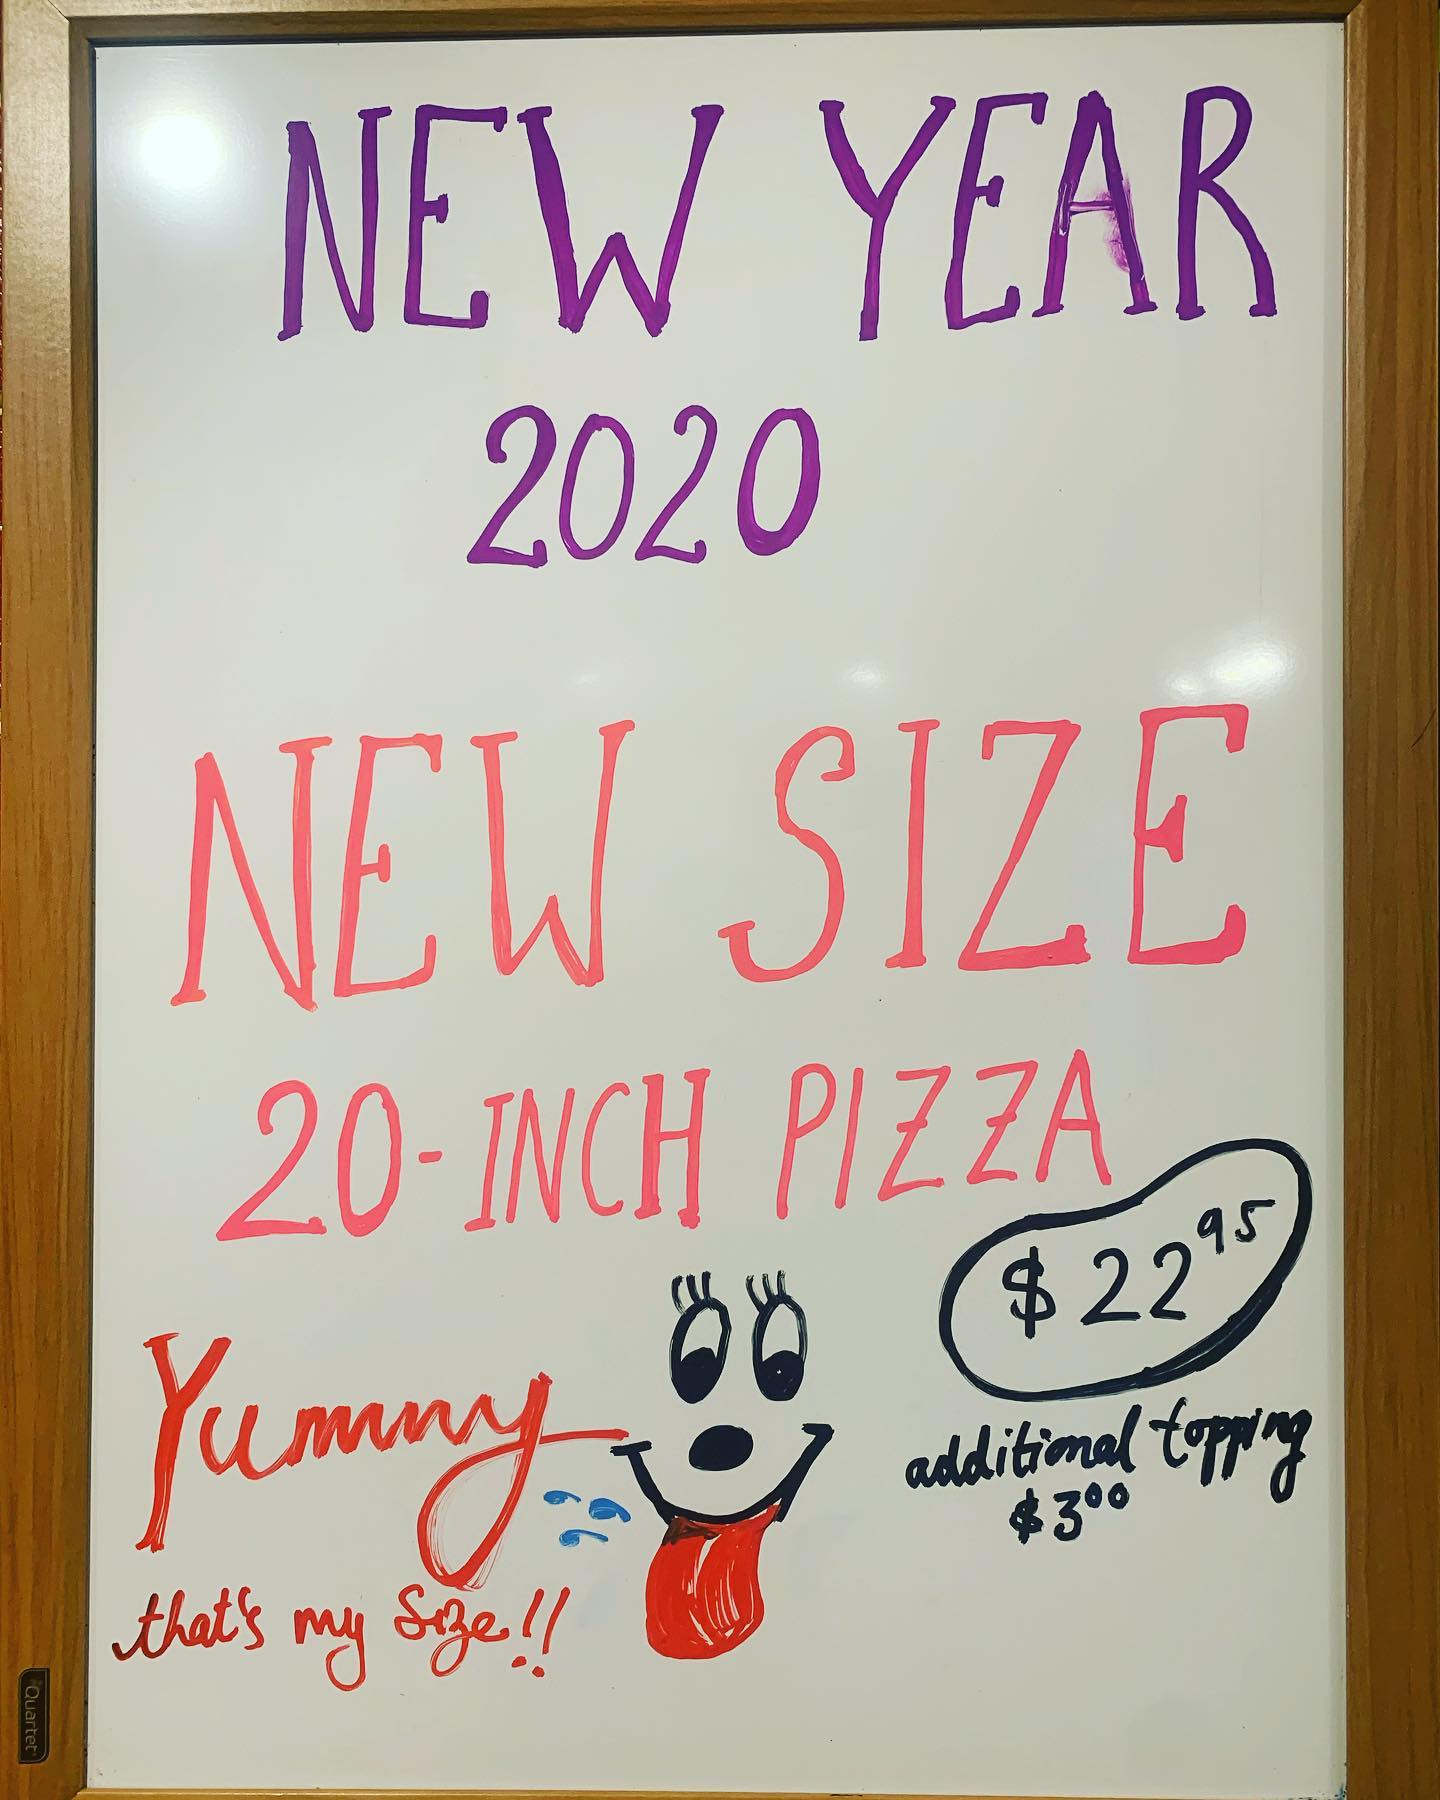 NEW YEAR
2020
NEW SIZE
20-INCH PIZZA
$22 95
additional topping
$3 00
Yummy
that's my size!!
Quartet